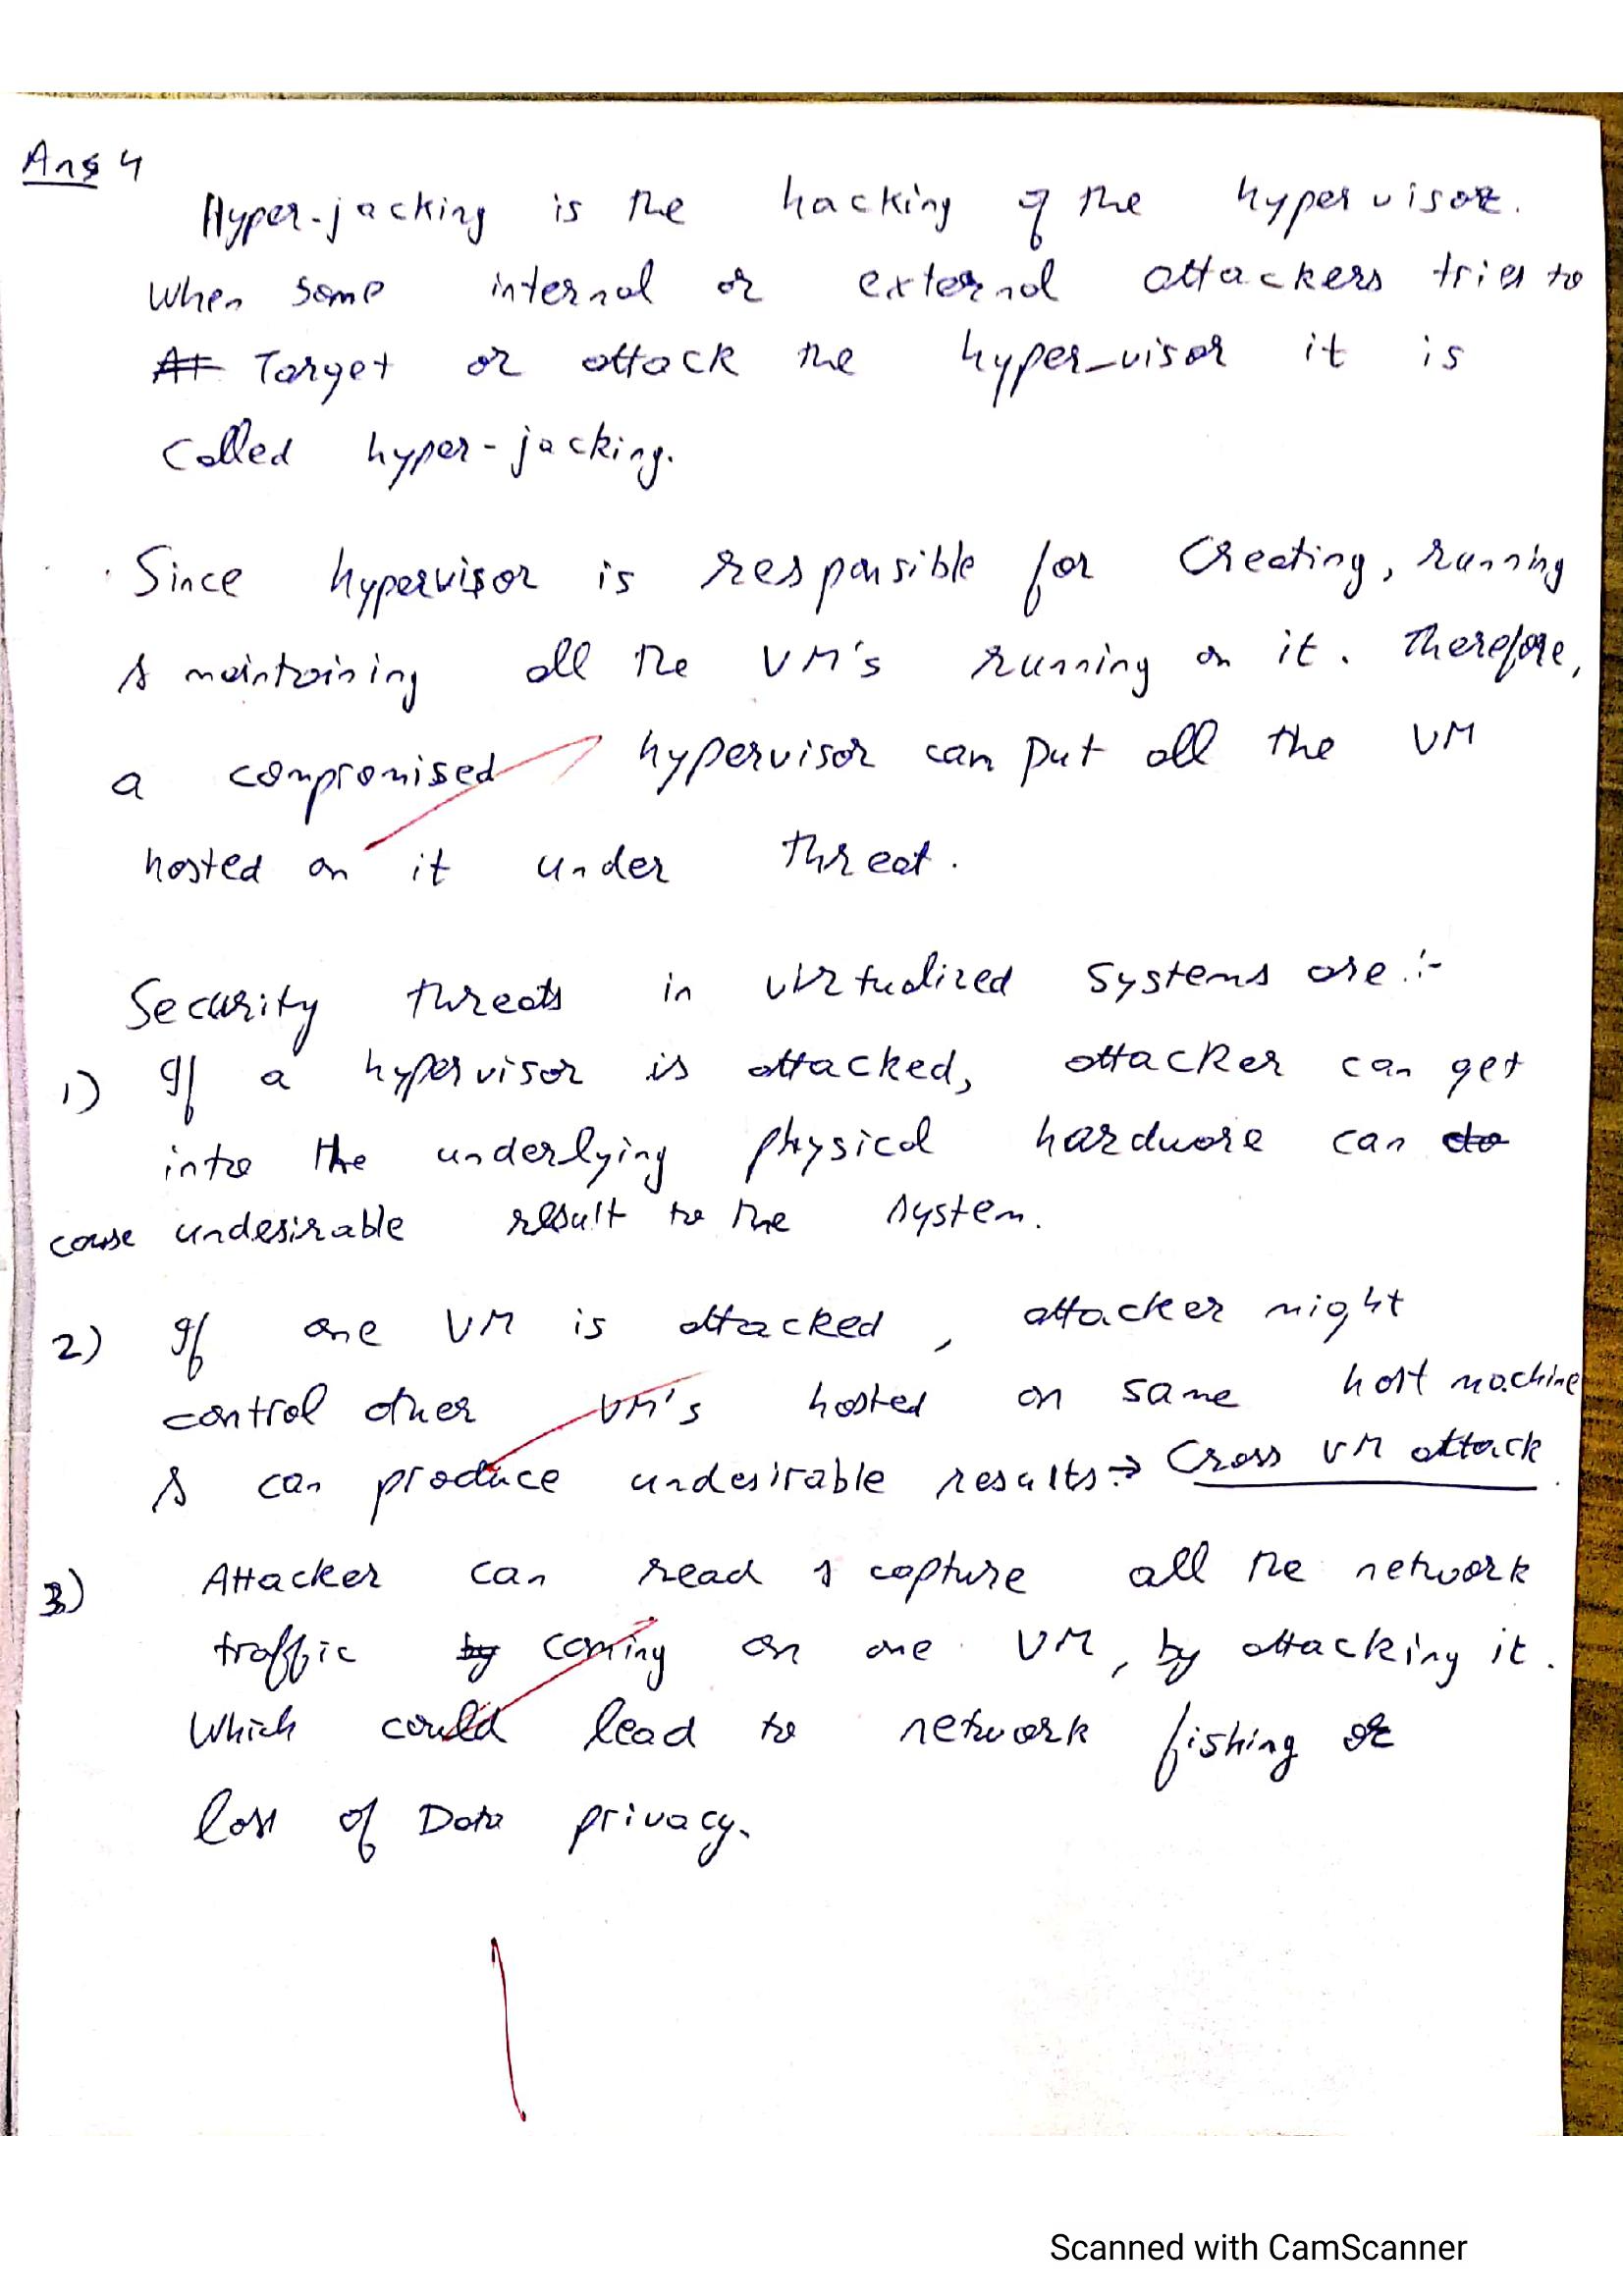 Ans 4
Hyper-jacking is the hacking of the hypervisor.
When some internal or external attackers tries to
At Target or attack the hyper-visor it is
called hyper-jacking.
Since hypervisor is responsible for Creating, running
& maintaining all the VM's running on it. Therefore,
a compromised hypervisor can put all the VM
hosted on it under threat.
Security threats in virtualized Systems are :-
1) If a hypervisor is attacked, attacker can get
into the underlying physical hardware can do
cause undesirable result to the system.
2) If one VM is attacked, attacker might
control other VM's hosted on same host machine
& can produce undesirable results → Cross VM attack.
3) Attacker can read & capture all the network
traffic by coming on one VM, by attacking it.
Which could lead to network fishing or
loss of Data privacy.
Scanned with CamScanner